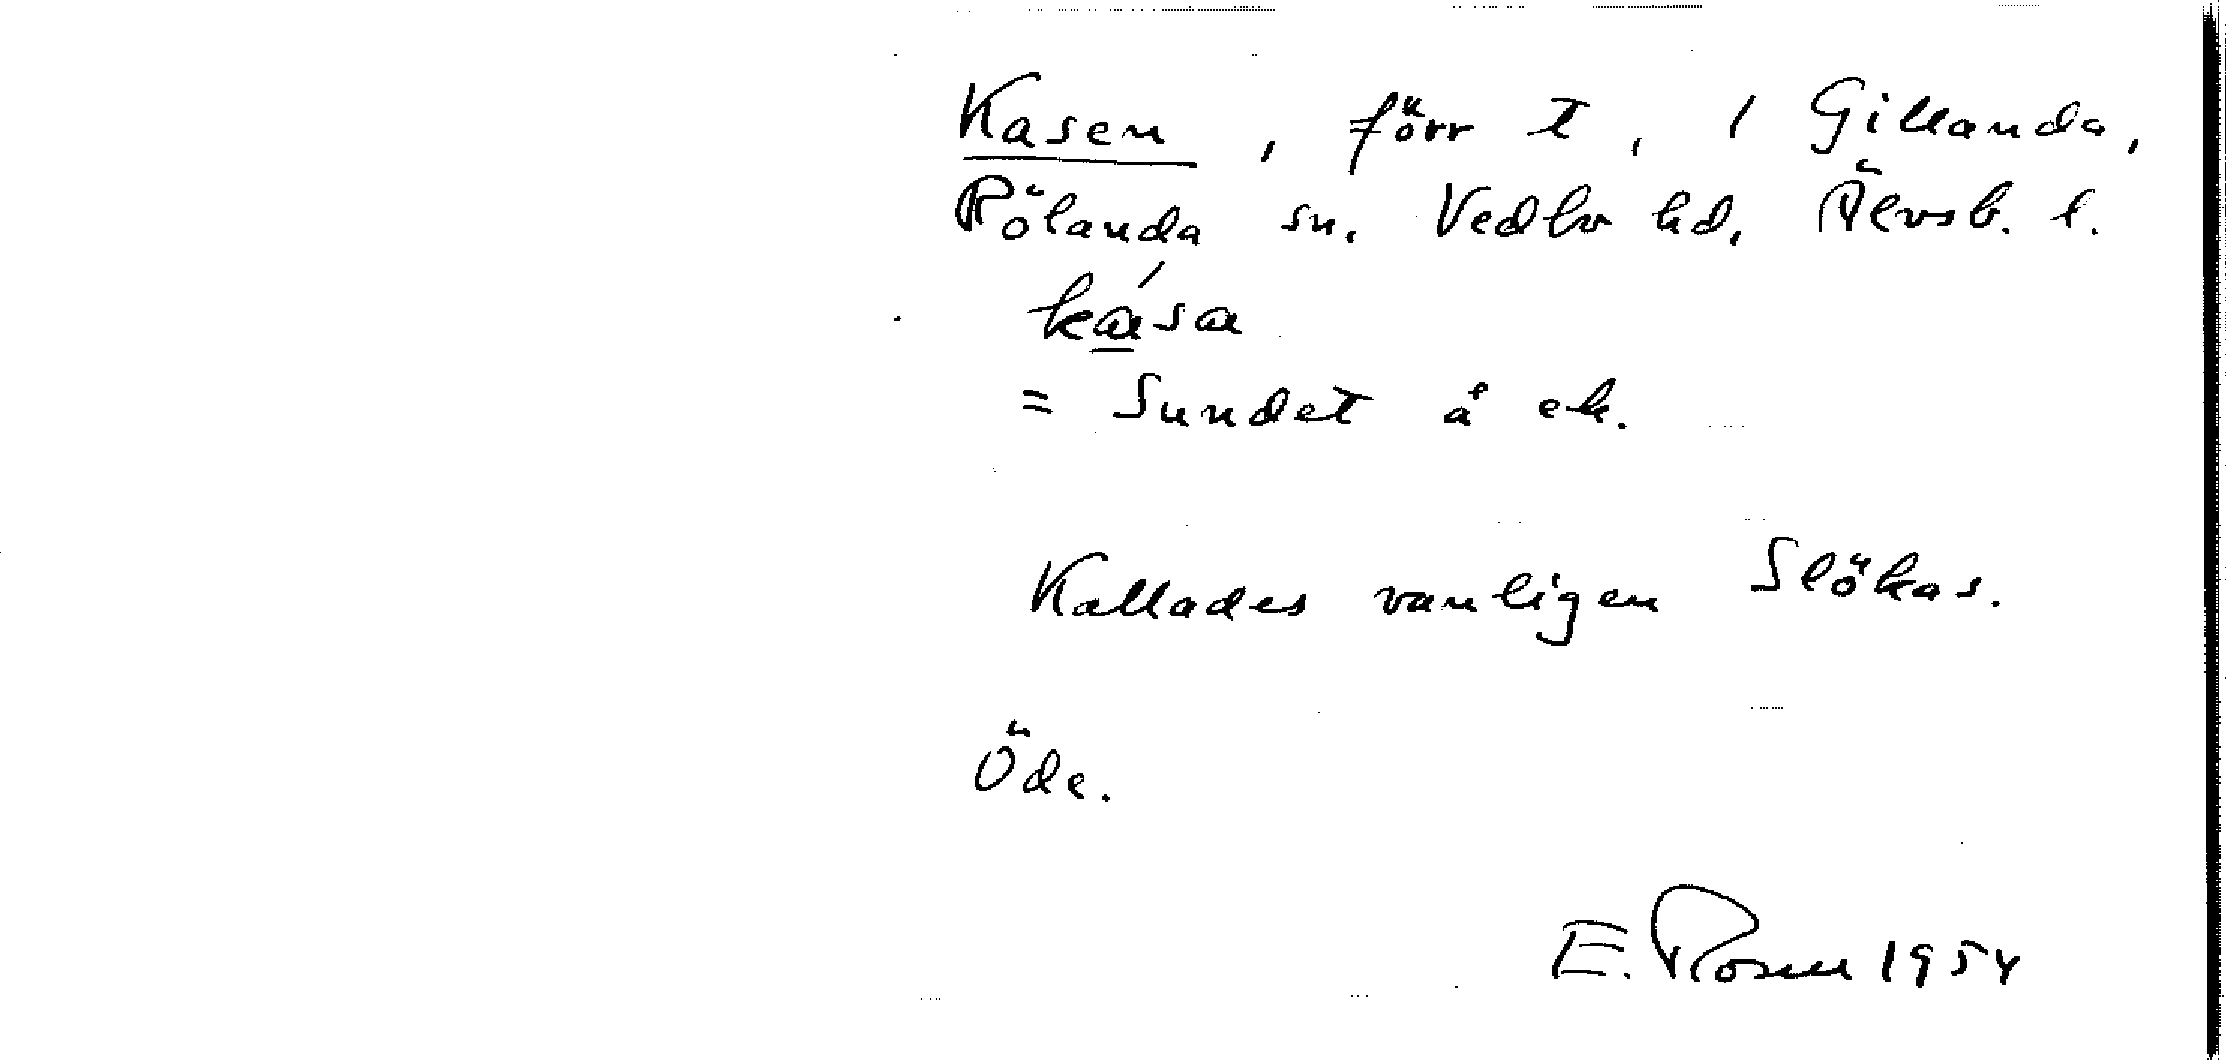 Kasen, förr t, 1 Gillanda,
Rölanda sn. Vedbo hd, Älvsb. l.
ká̱sa
= Sundet å ek.
Kallades vanligen Slökas.
Öde.
E. Rosen 1954